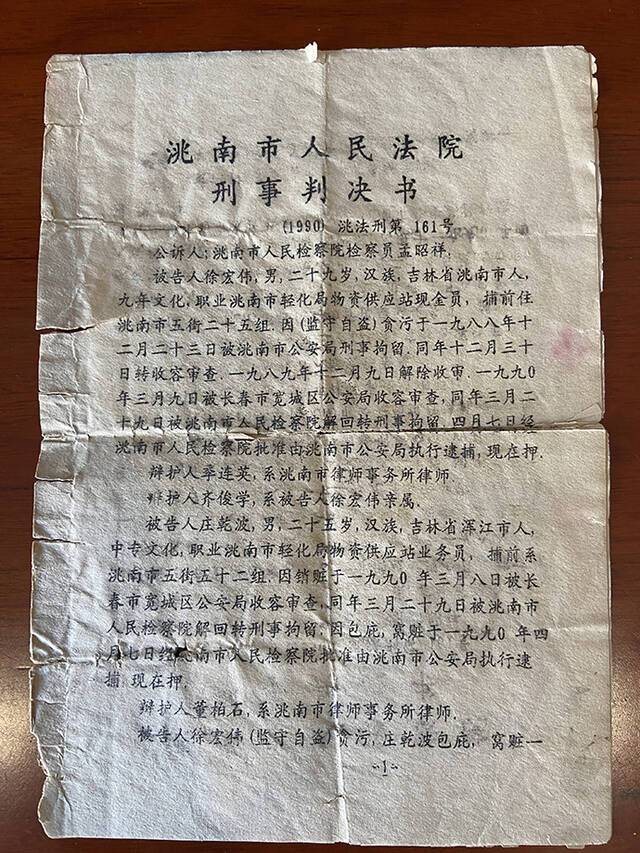 洮南市人民法院
刑事判决书
(1990) 洮法刑第 161号
公诉人:洮南市人民检察院检察员孟昭祥.
被告人徐宏伟,男,二十九岁,汉族,吉林省洮南市人,
九年文化,职业洮南市轻化局物资供应站现金员, 捕前住
洮南市五街二十五组.因(监守自盗)贪污于一九八八年十
二月二十三日被洮南市公安局刑事拘留.同年十二月三十
日转收容审查.一九八九年十二月九日解除收审.一九九0
年三月九日被长春市宽城区公安局收容审查,同年三月二
十九日被洮南市人民检察院解回转刑事拘留.四月七日经
洮南市人民检察院批准由洮南市公安局执行逮捕,现在押.
辩护人李连英,系洮南市律师事务所律师.
辩护人齐俊学,系被告人徐宏伟亲属.
被告人庄乾波,男,二十五岁,汉族,吉林省浑江市人,
中专文化,职业洮南市轻化局物资供应站业务员, 捕前系
洮南市五街五十二组.因销赃于一九九0 年三月八日被长
春市宽城区公安局收容审查,同年三月二十九日被洮南市
人民检察院解回转刑事拘留.因包庇,窝赃于一九九0 年四
月七日经洮南市人民检察院批准由洮南市公安局执行逮
捕.现在押.
辩护人董柏石,系洮南市律师事务所律师.
被告人徐宏伟(监守自盗)贪污,庄乾波包庇, 窝赃一
-1-